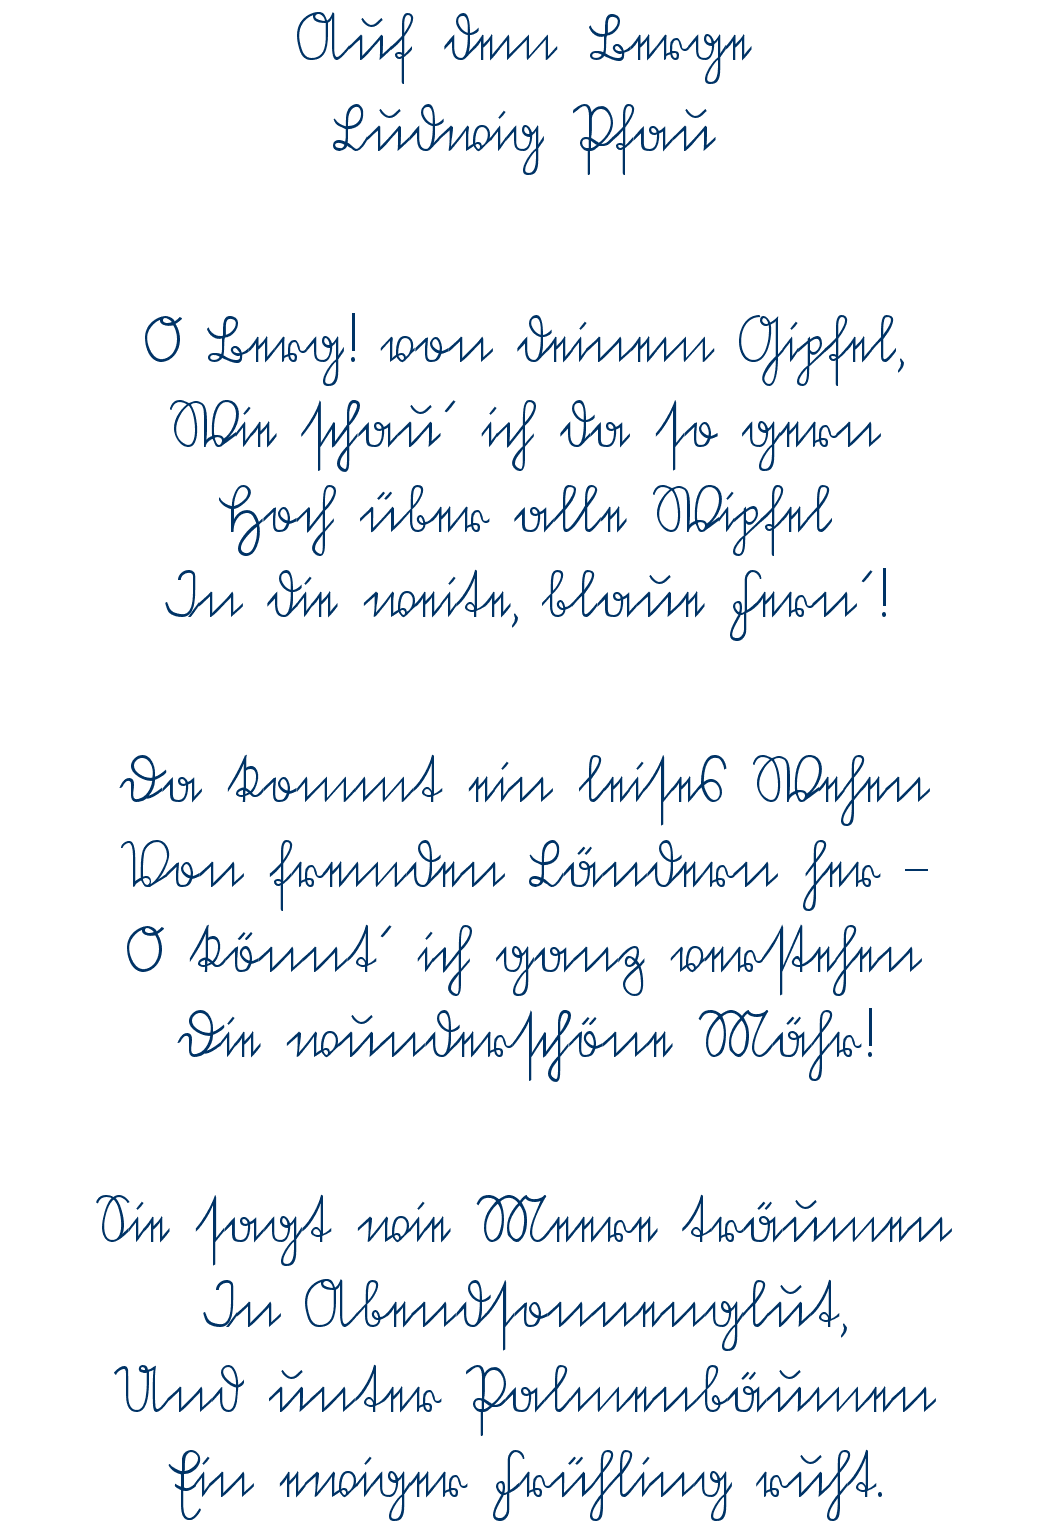 Auf dem Berge
Ludwig Pfau
O Berg! von deinem Gipfel,
Wie schau´ ich da so gern
Hoch über alle Wipfel
In die weite, blaue Fern´!
Da kommt ein leises Wehen
Von fremden Ländern her –
O könnt´ ich ganz verstehen
Die wunderschöne Mähr!
Sie sagt wie Meere träumen
In Abendsonnenglut,
Und unter Palmenbäumen
Ein ewiger Frühling ruht.